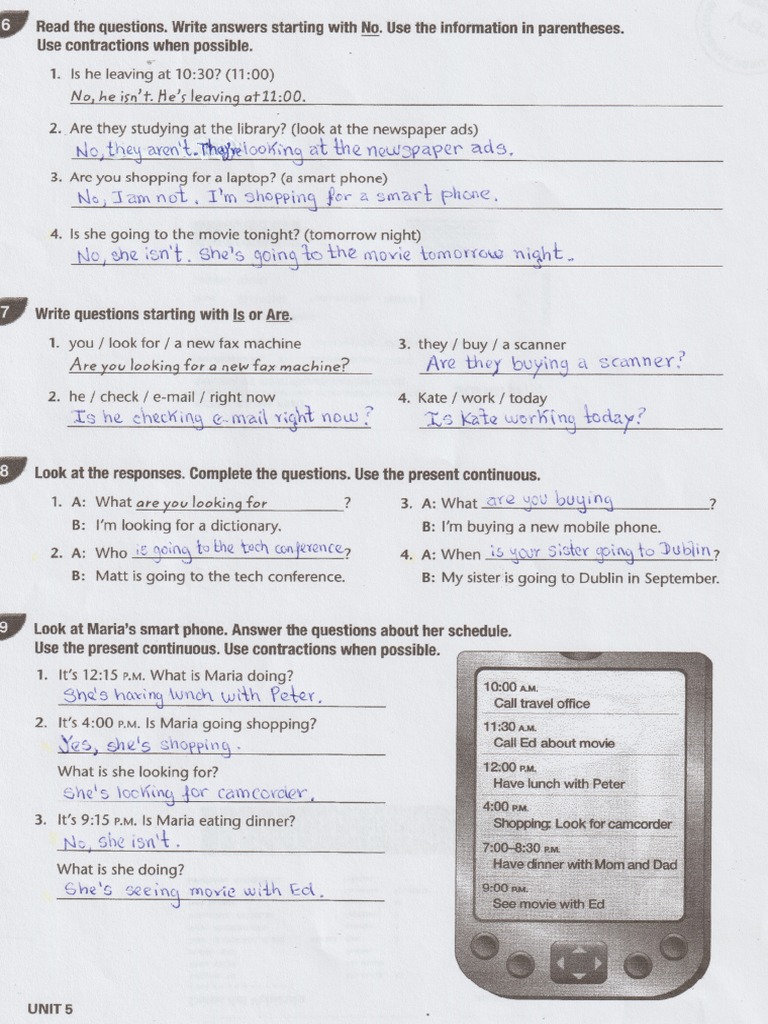 6 Read the questions. Write answers starting with No. Use the information in parentheses.
Use contractions when possible.
1. Is he leaving at 10:30? (11:00)
No, he isn't. He's leaving at 11:00.
2. Are they studying at the library? (look at the newspaper ads)
No, they aren't. They're looking at the newspaper ads.
3. Are you shopping for a laptop? (a smart phone)
No, I am not. I'm shopping for a smart phone.
4. Is she going to the movie tonight? (tomorrow night)
No, she isn't. She's going to the movie tomorrow night.
7 Write questions starting with Is or Are.
1. you / look for / a new fax machine
Are you looking for a new fax machine?
2. he / check / e-mail / right now
Is he checking e-mail right now?
3. they / buy / a scanner
Are they buying a scanner?
4. Kate / work / today
Is Kate working today?
8 Look at the responses. Complete the questions. Use the present continuous.
1. A: What are you looking for ?
B: I'm looking for a dictionary.
2. A: Who is going to the tech conference?
B: Matt is going to the tech conference.
3. A: What are you buying ?
B: I'm buying a new mobile phone.
4. A: When is your sister going to Dublin?
B: My sister is going to Dublin in September.
9 Look at Maria's smart phone. Answer the questions about her schedule.
Use the present continuous. Use contractions when possible.
1. It's 12:15 P.M. What is Maria doing?
She's having lunch with Peter.
2. It's 4:00 P.M. Is Maria going shopping?
Yes, she's shopping.
What is she looking for?
She's looking for camcorder.
3. It's 9:15 P.M. Is Maria eating dinner?
No, she isn't.
What is she doing?
She's seeing movie with Ed.
10:00 A.M.
Call travel office
11:30 A.M.
Call Ed about movie
12:00 P.M.
Have lunch with Peter
4:00 P.M.
Shopping: Look for camcorder
7:00–8:30 P.M.
Have dinner with Mom and Dad
9:00 P.M.
See movie with Ed
UNIT 5